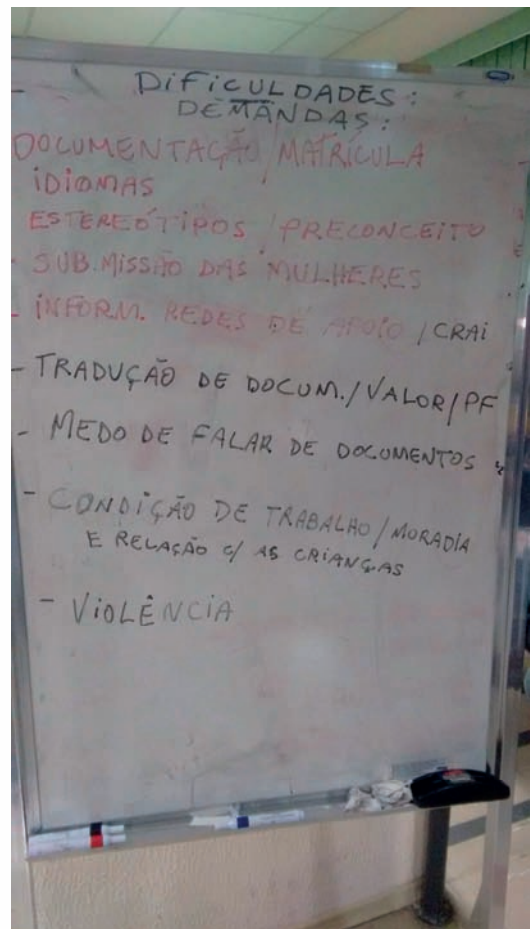 - DIFICULDADES:
DEMANDAS:
DOCUMENTAÇÃO/MATRÍCULA
IDIOMAS
ESTEREÓTIPOS/PRECONCEITO
- SUBMISSÃO DAS MULHERES
- INFORM. REDES DE APOIO/CRAI
- TRADUÇÃO DE DOCUM./VALOR/PF
- MEDO DE FALAR DE DOCUMENTOS
- CONDIÇÃO DE TRABALHO/MORADIA
E RELAÇÃO C/ AS CRIANÇAS
- VIOLÊNCIA